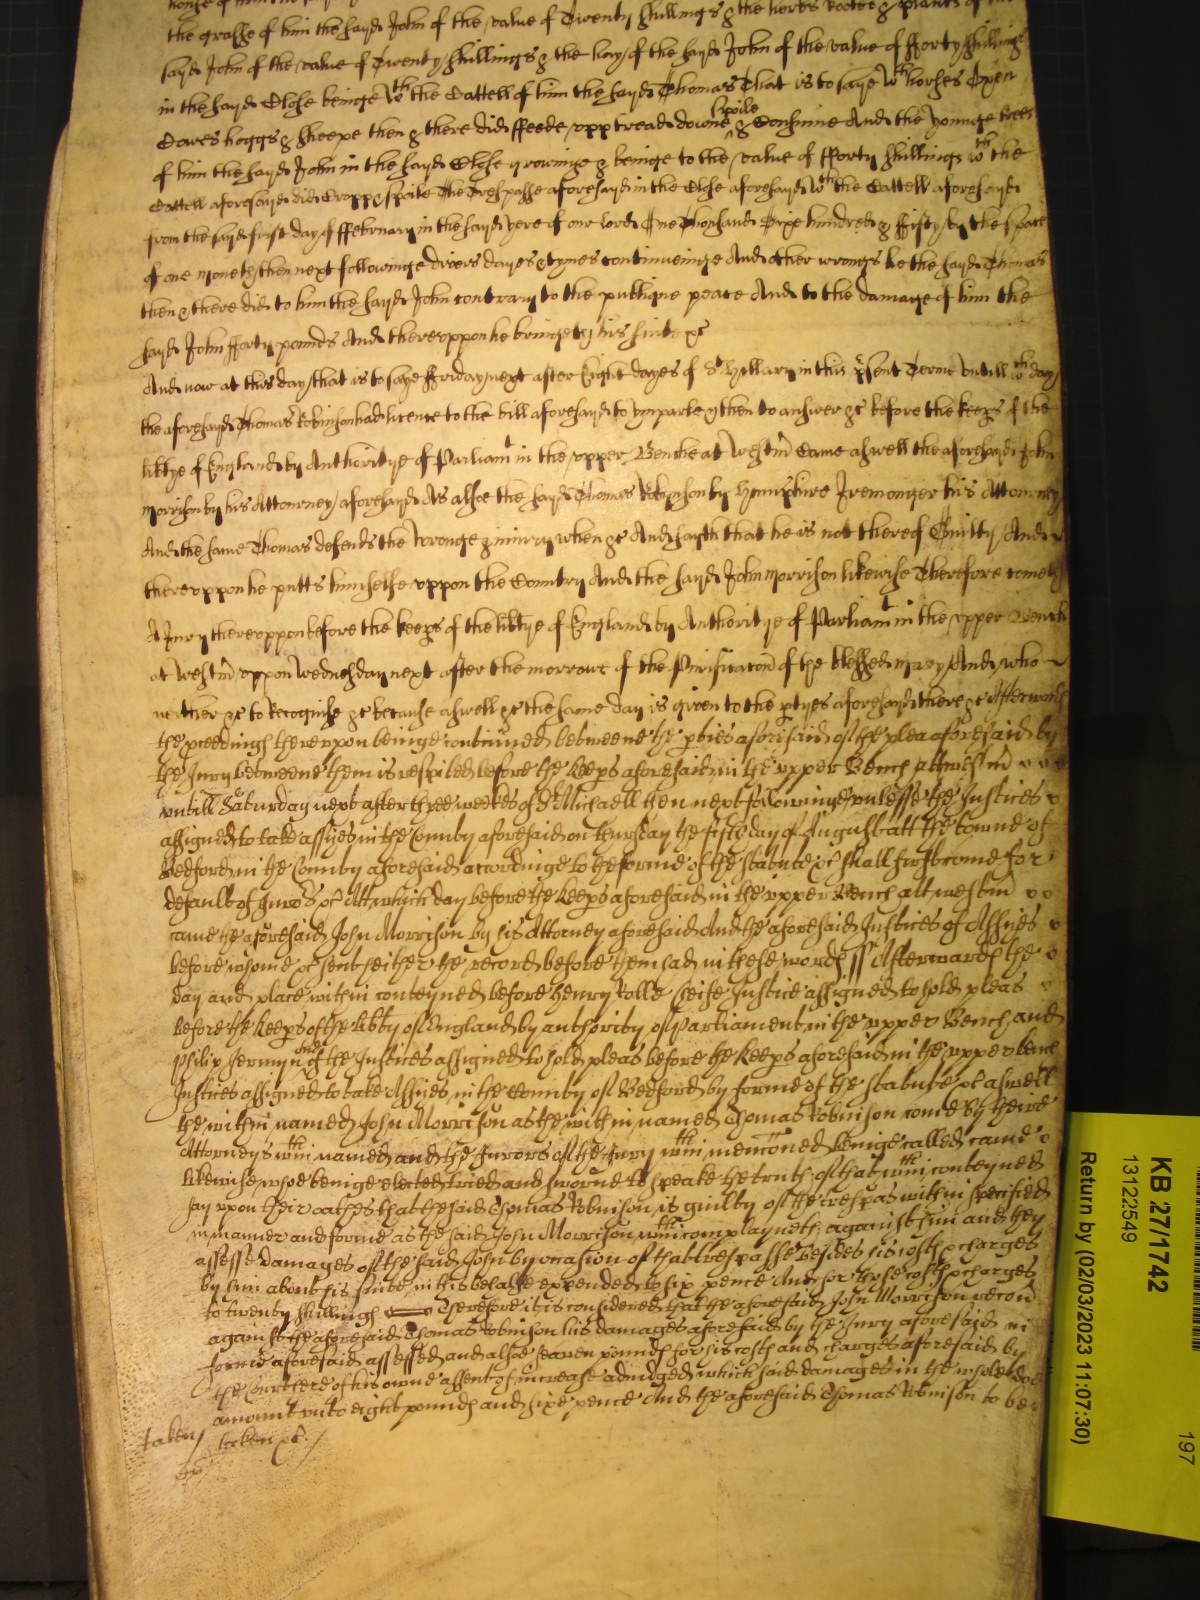 the grasse of him the sayd John of the value of Twenty shillings & the herbs rootes & plants of the
sayd John of the value of Twenty shillings & the hay of the sayd John of the value of fforty shillings
in the sayd Close beinge wth the Cattell of him the sayd Thomas That is to saye wth horses Oxen
Cowes hoggs & sheepe then & there did ffeede upp tread downe spoile & Consume And the younge trees
of him the sayd John in the sayd Close growinge & beinge to the value of fforty shillings wth the
Cattell aforesayd did Cropp & spoile The Trespasse aforesayd in the Close aforesayd wth the Cattell aforesayd
from the sayd first day of ffebruary in the sayd yere of our lord One Thousand Sixe hundred & ffifty by the space
of one moneth then next followinge divers dayes & tymes continueinge And other wrongs he the sayd Thomas
then & there did to him the sayd John contrary to the publique peace And to the damage of him the
sayd John fforty pounds And thereuppon he bringeth his suite &c
And now at this day that is to saye ffriday next after Eight dayes of St Hillary in this psent Terme Untill wch day
the aforesayd Thomas Robinson had licence to the bill aforesayd to ymparle & then to answer &c before the keeps of the
libtye of England by Authoritye of Parliamt in the upper Bench at Westm Came aswell the aforesayd John
Morrison by his Attourney aforesayd As alsoe the sayd Thomas Robinson by Humfrey Iremonger his Attourney
And the same Thomas defends the wronge & iniury when &c And sayth that he is not thereof Guilty And
thereuppon he putts himselfe uppon the Country And the sayd John Morrison likewise Therefore cometh
A Jury thereuppon before the keeps of the libtye of England by Authoritye of Parliamt in the upper Bench
at Westm uppon Wednesday next after the morrowe of the Purificacon of the blessed Mary And who
neither &c to Recognise &c because aswell &c the same day is given to the ptyes aforesayd there &c Afterwards
the pceedings thereupon beinge continued betweene the pties aforesaid of the plea aforesaid by
the Jury betweene them is respited before the Keeps aforesaid in the upper Bench att westm
untill Saturday next after three weekes of St Michaell then next followinge unlesse the Justices
assigned to take assises in the County aforesaid on Thursday the fifth day of August att the towne of
Bedford in the County aforesaid accordinge to the forme of the statute &c shall first come for
default of Juros &c Att which day before the Keeps aforesaid in the upper Bench att westm
came the aforesaid John Morrison by his Attorney aforesaid And the aforesaid Justices of Assises
before whome &c sent heither the record before them had in these words ss Afterwards the
day and place within conteyned before Henry Rolle cheife Justice assigned to hold pleas
before the Keeps of the libty of England by authority of Parliament in the upper Bench and
Philip Jermyn one of the Justices assigned to hold pleas before the Keeps aforesaid in the upper bench
Justices assigned to take Assises in the County of Bedford by forme of the statute &c aswell
the within named John Morrison as the within named Thomas Robinson come by theire
Attorneys wthin named and the Jurors of the Jury wthin menconed beinge called came
likewise whoe beinge elected tried and sworne to speake the truth of that wthin conteyned
say upon their oathes that the said Thomas Robinson is guilty of the trespas within specified
in manner and forme as the said John Morrison wthin complayneth against him and they
assesse damages of the said John by occasion of that trespasse besides his costs & charges
by him about his suite in this behalfe expended to six pence And for those costs & charges
to twenty shillings Therefore it is considered that the aforesaid John Morrison recou
against the aforesaid Thomas Robinson his damages aforesaid by the Jury aforesaid in
forme aforesaid assessed and alsoe seaven pounds for his costs and charges aforesaid by
the Court here of his owne assent of increase adiudged which said damages in the whole doe
amount unto eight pounds and sixe pence And the aforesaid Thomas Robinson to be
taken &c
taken
KB 27/1742
13122549
Return by (02/03/2023 11:07:30)
197